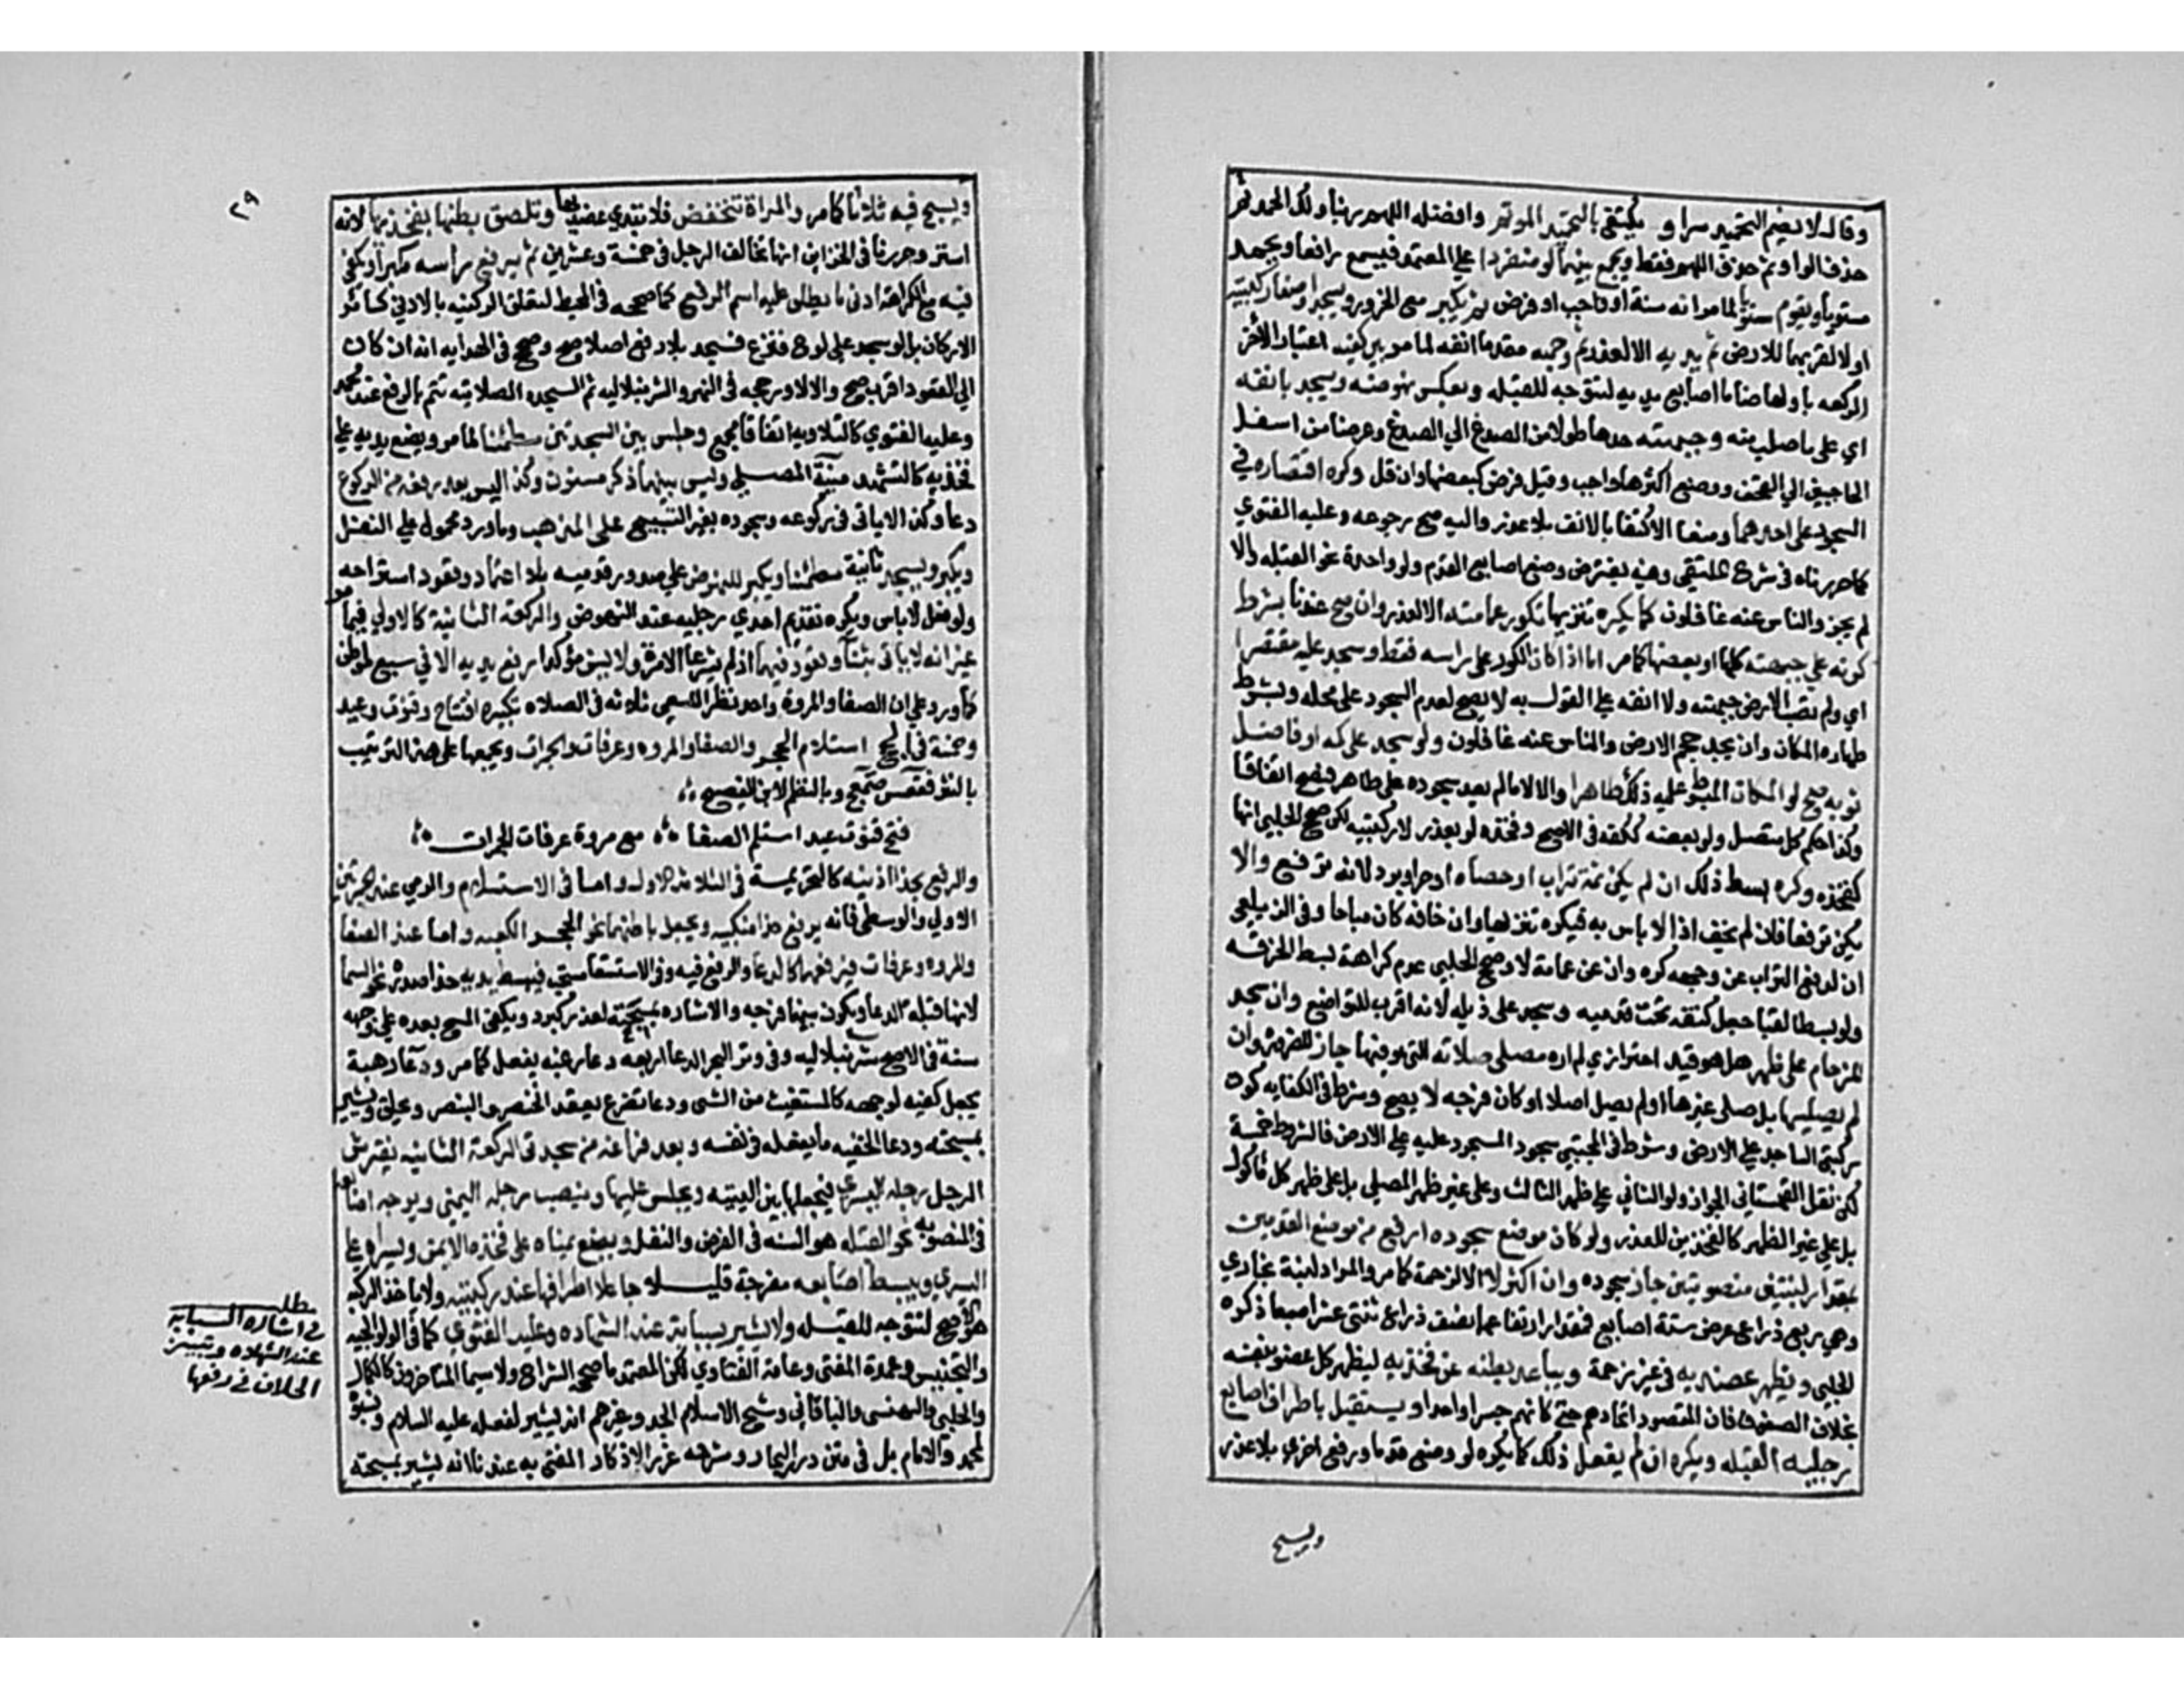 وقالا يضم التحميد سرا و يكتفي بالتحميد الموتم وافضله اللهم ربنا ولك الحمد ثم
حذف الواو ثم حذف اللهم فقط ويجمع بينهما لو منفردا علي المعتمد فيسمع رافعا ويحمد
مستويا ويقوم مستويا لما مر انه سنة او واجب او فرض ثم يكبر مع الخرور ويسجد واضعا ركبتيه
اولا لقربهما للارض ثم يديه الا لعذر ثم وجهه مقدما انفه لما مر بين كفيه اعتبارا لاخر
الركعه باولها ضاما اصابع يديه لتتوجه للقبله ويعكس نهوضه ويسجد بانفه
اي على ما صلب منه وجبهته حدها طولا من الصدغ الي الصدغ وعرضا من اسفل
الحاجبين الي القحف ووضع اكثرها واجب وقيل فرض كبعضها وان قل وكره اقتصاره في
السجود على احدهما ومنعا الاكتفا بالانف بلا عذر واليه صح رجوعه وعليه الفتوي
كما حررناه في شرح الملتقي وفيه يفترض وضع اصابع القدم ولو واحدة نحو القبله والا
لم يجز والناس عنه غافلون كما يكره تنزيها بكور عمامته الا لعذر وان صح عندنا بشرط
كونه علي جبهته كلها او بعضها كما مر اما اذا كان الكور على راسه فقط وسجد عليه مقتصرا
اي ولم تصب الارض جبهته ولا انفه علي القول به لا يصح لعدم السجود على محله وبشرط
طهارة المكان وان يجد حجم الارض والناس عنه غافلون ولو سجد على كمه او فاضل
ثوبه صح لو المكان المبسوط عليه ذلك طاهرا والا لا ما لم يعد سجوده على طاهر فيصح اتفاقا
وكذا حكم كل متصل ولو بعضه ككفه في الاصح وفخذه لو بعذر لا ركبتيه لكن صحح الحلبي انها
كفخذه وكره بسط ذلك ان لم يكن ثمة تراب او حصاه او حر او برد لانه ترفع والا
يكن ترفعا فان لم يخف اذا لا باس به فيكره تنزيها وان خافه كان مباحا وفي الزيلعي
ان لدفع التراب عن وجهه كره وان عن عمامة لا وصحح الحلبي عدم كراهة بسط الخرقه
ولو بسط القبا جعل كتفه تحت قدميه وسجد على ذيله لانه اقرب للتواضع وان سجد
للزحام على ظهر هل هو قيد احترازي لم اره مصلى صلاته التي هو فيها جاز للضروره وان
لم يصليها بل صلى غيرها او لم يصل اصلا او كان فرجه لا يصح وشرط في الكفايه كون
ركبتي الساجد علي الارض وشرط في المجتبي سجود المسجود عليه علي الارض فالشروط خمسة
لكن نقل القهستاني الجواز ولو الثاني علي ظهر الثالث وعلى غير ظهر المصلي بل على ظهر كل ماكول
بل علي غير الظهر كالفخذين للعذر ولو كان موضع سجوده ارفع من موضع القدمين
بمقدار لبنتين منصوبتين جاز سجوده وان اكثر لا الا لزحمة كما مر والمراد لبنة بخاري
وهي ربع ذراع عرض ستة اصابع فمقدار ارتفاعهما نصف ذراع ثنتي عشر اصبعا ذكره
الحلبي ويظهر عضديه في غير زحمة ويباعد بطنه عن فخذيه ليظهر كل عضو بنفسه
بخلاف الصفوف فان المقصود اتحادهم حتى كانهم جسدا واحدا ويستقبل باطراف اصابع
رجليه القبله ويكره ان لم يفعل ذلك كما يكره لو وضع قدما ورفع اخري بلا عذر
ويسبح
٣٩
ويسبح فيه ثلاثا كما مر والمراة تنخفض فلا تبدي عضديها وتلصق بطنها بفخذيها لانه
استر وحررنا في الخزاين انها تخالف الرجل في خمسة وعشرين ثم يرفع راسه مكبرا ويكفي
فيه مع الكراهة ادنى ما يطلق عليه اسم الرفع كما صححه في المحيط لتعلق الركنيه بالادني كسائر
الاركان بل لو سجد على لوح فنزع فسجد بلا رفع اصلا صح وصحح في الهدايه انه ان كان
الي القعود اقرب صح والا لا ورجحه في النهر والشرنبلاليه ثم السجده الصلاتيه تتم بالرفع عند محمد
وعليه الفتوي كالتلاويه اتفاقا مجمع وجلس بين السجدتين مطمئنا لما مر ويضع يديه علي
فخذيه كالتشهد منية المصلي وليس بينهما ذكر مسنون وكذا ليس بعد رفعه من الركوع
دعا وكذا لا ياتي في ركوعه وسجوده بغير التسبيح على المذهب وما ورد محمول علي النفل
ويكبر ويسجد ثانية مطمئنا ويكبر للنهوض على صدور قدميه بلا اعتماد وقعود استراحه
ولو فعل لا باس ويكره تقديم احدي رجليه عند النهوض والركعة الثانية كالاولي فيما مر
غير انه لا ياتي بثنا وتعوذ فيها اذ لم يشرعا الا مرة ولا يسن مؤكدا رفع يديه الا في سبع مواطن
كما ورد علي ان الصفا والمروة واحد نظرا للسعي ثلاثه في الصلاه تكبيره افتتاح وقنوت وعيد
وخمسة في الحج استلام الحجر والصفا والمروه وعرفات والجمرات ويجمعها على هذا الترتيب
بالنثر فقعس صمعج وبالنظم لابن الفصيح
فتح قنوت عيد استلم الصفا مع مروة عرفات الجمرات
والرفع بحذا اذنيه كالتحريمة في الثلاثة الاول واما في الاستلام والرمي عند الجمرتين
الاولي والوسطي فانه يرفع حذا منكبيه ويجعل باطنهما نحو الحجر والكعبه واما عند الصفا
والمروه وعرفات فيرفعهما كالدعا والرفع فيه وفي الاستسقا مستحب فيبسط يديه حذا صدره نحو السما
لانها قبلة الدعا ويكون بينهما فرجه والاشاره بمسبحته لعذر كبرد ويكفي المسح بعده علي وجهه
سنة في الاصح شرنبلاليه وفي وتر البحر الدعا اربعه دعا رغبه يفعل كما مر ودعا رهبة
يجعل كفيه لوجهه كالمستغيث من الشي ودعا تضرع يعقد الخنصر والبنصر ويحلق ويشير
بمسبحته ودعا الخفيه ما يفعله في نفسه وبعد فراغه من سجدتي الركعة الثانيه يفترش
الرجل رجله اليسرى فيجعلها بين اليتيه ويجلس عليها وينصب رجله اليمني ويوجه اصابعه
في المنصوبه نحو القبله هو السنه في الفرض والنفل ويضع يمناه على فخذه الايمن ويسراه علي
اليسري ويبسط اصابعه مفرجة قليلا جاعلا اطرافها عند ركبتيه ولا ياخذ الركبه
هو الاصح لتتوجه للقبله ولا يشير بسبابته عند الشهاده وعليه الفتوي كما في الولوالجيه
والتجنيس وعمدة المفتي وعامة الفتاوي لكن المعتمد ما صححه الشراح ولا سيما المتاخرون كالكمال
والحلبي والبهنسي والباقاني وشيخ الاسلام الجد وغيرهم انه يشير لفعله عليه السلام ونسبوه
لمحمد والامام بل في متن درر البحار وشرحه غرر الاذكار المفتي به عندنا انه يشير بمسبحته
مطلب
في اشارة السبابه
عند الشهاده وتبيين
الخلاف في رفعها